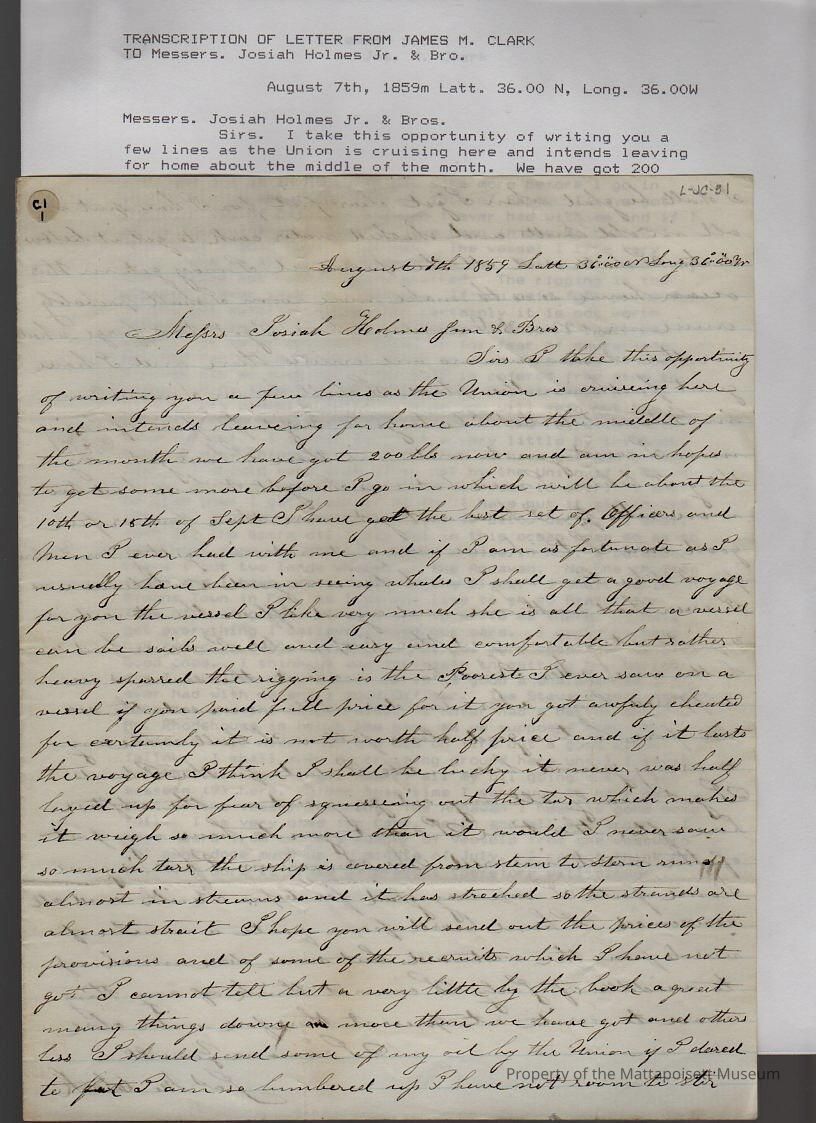 TRANSCRIPTION OF LETTER FROM JAMES M. CLARK
TO Messers. Josiah Holmes Jr. & Bro.
August 7th, 1859m Latt. 36.00 N, Long. 36.00W
Messers. Josiah Holmes Jr. & Bros.
Sirs. I take this opportunity of writing you a
few lines as the Union is cruising here and intends leaving
for home about the middle of the month. We have got 200
C.1
1
L-JC-31
August 7th 1859 Latt 36°00 N Long 36°00 W
Messrs Josiah Holmes Jun & Bros
Sirs I take this opportunity
of writing you a few lines as the Union is cruiseing here
and intends leaveing for home about the middle of
the month we have got 200 bbls now and am in hopes
to get some more before I go in which will be about the
10th or 15th of Sept I have got the best set of Officers and
Men I ever had with me and if I am as fortunate as I
usually have been in seeing whales I shall get a good voyage
for you the vessel I like very much she is all that a vessel
can be sails well and easy and comfortable but rather
heavy sparred the rigging is the Poorest I ever saw on a
vessel if you paid full price for it you got awfuly cheated
for certainly it is not worth half price and if it lasts
the voyage I think I shall be lucky it never was half
layed up for fear of squeseeing out the tar which makes
it weigh so much more than it would I never saw
so much tarr the ship is covered from stem to stern runs
almost in streams and it has streched so the strands are
almost strait I hope you will send out the prices of the
provisions and of some of the recruits which I have not
got I cannot tell but a very little by the book a great
many things downe more then we have got and others
less I should send some of my oil by the Union if I dared
to but I am so lumbered up I have not room to stir
Property of the Mattapoisett Museum